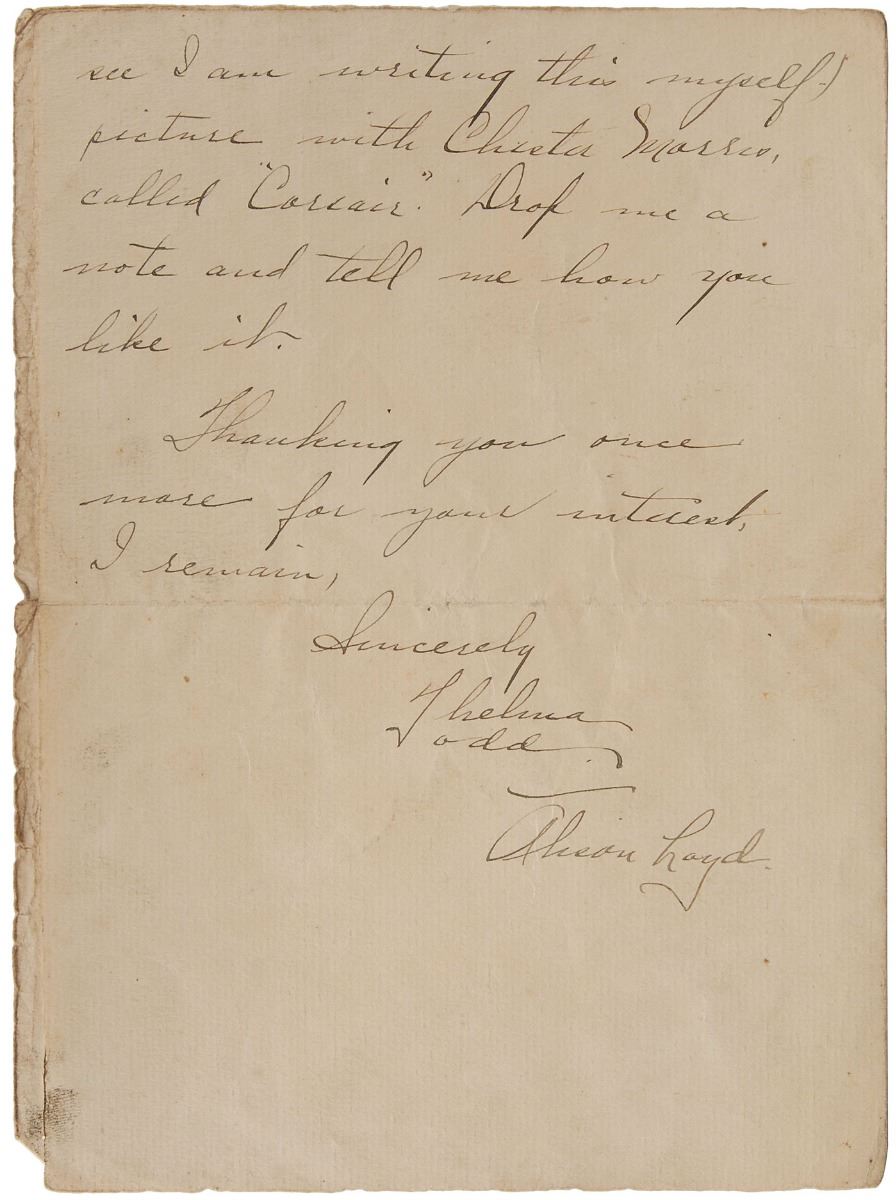 see I am writing this myself.)
picture with Chester Morris,
called "Corsair". Drop me a
note and tell me how you
like it.
Thanking you once
more for your interest,
I remain,
Sincerely
Thelma
Todd.
Alison Loyd.